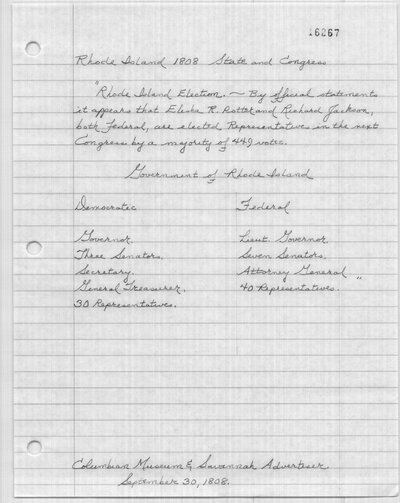 16267
Rhode Island 1808 State and Congress
"Rhode Island Election. ~ By official statements
it appears that Elisha R. Potter and Richard Jackson,
both Federal, are elected Representatives in the next
Congress by a majority of 449 votes.
Government of Rhode Island
Democratic Federal
Governor. Lieut. Governor
Three Senators. Seven Senators.
Secretary. Attorney General
General Treasurer. 40 Representatives. "
30 Representatives.
Columbian Museum & Savannah Advertiser.
September 30, 1808.